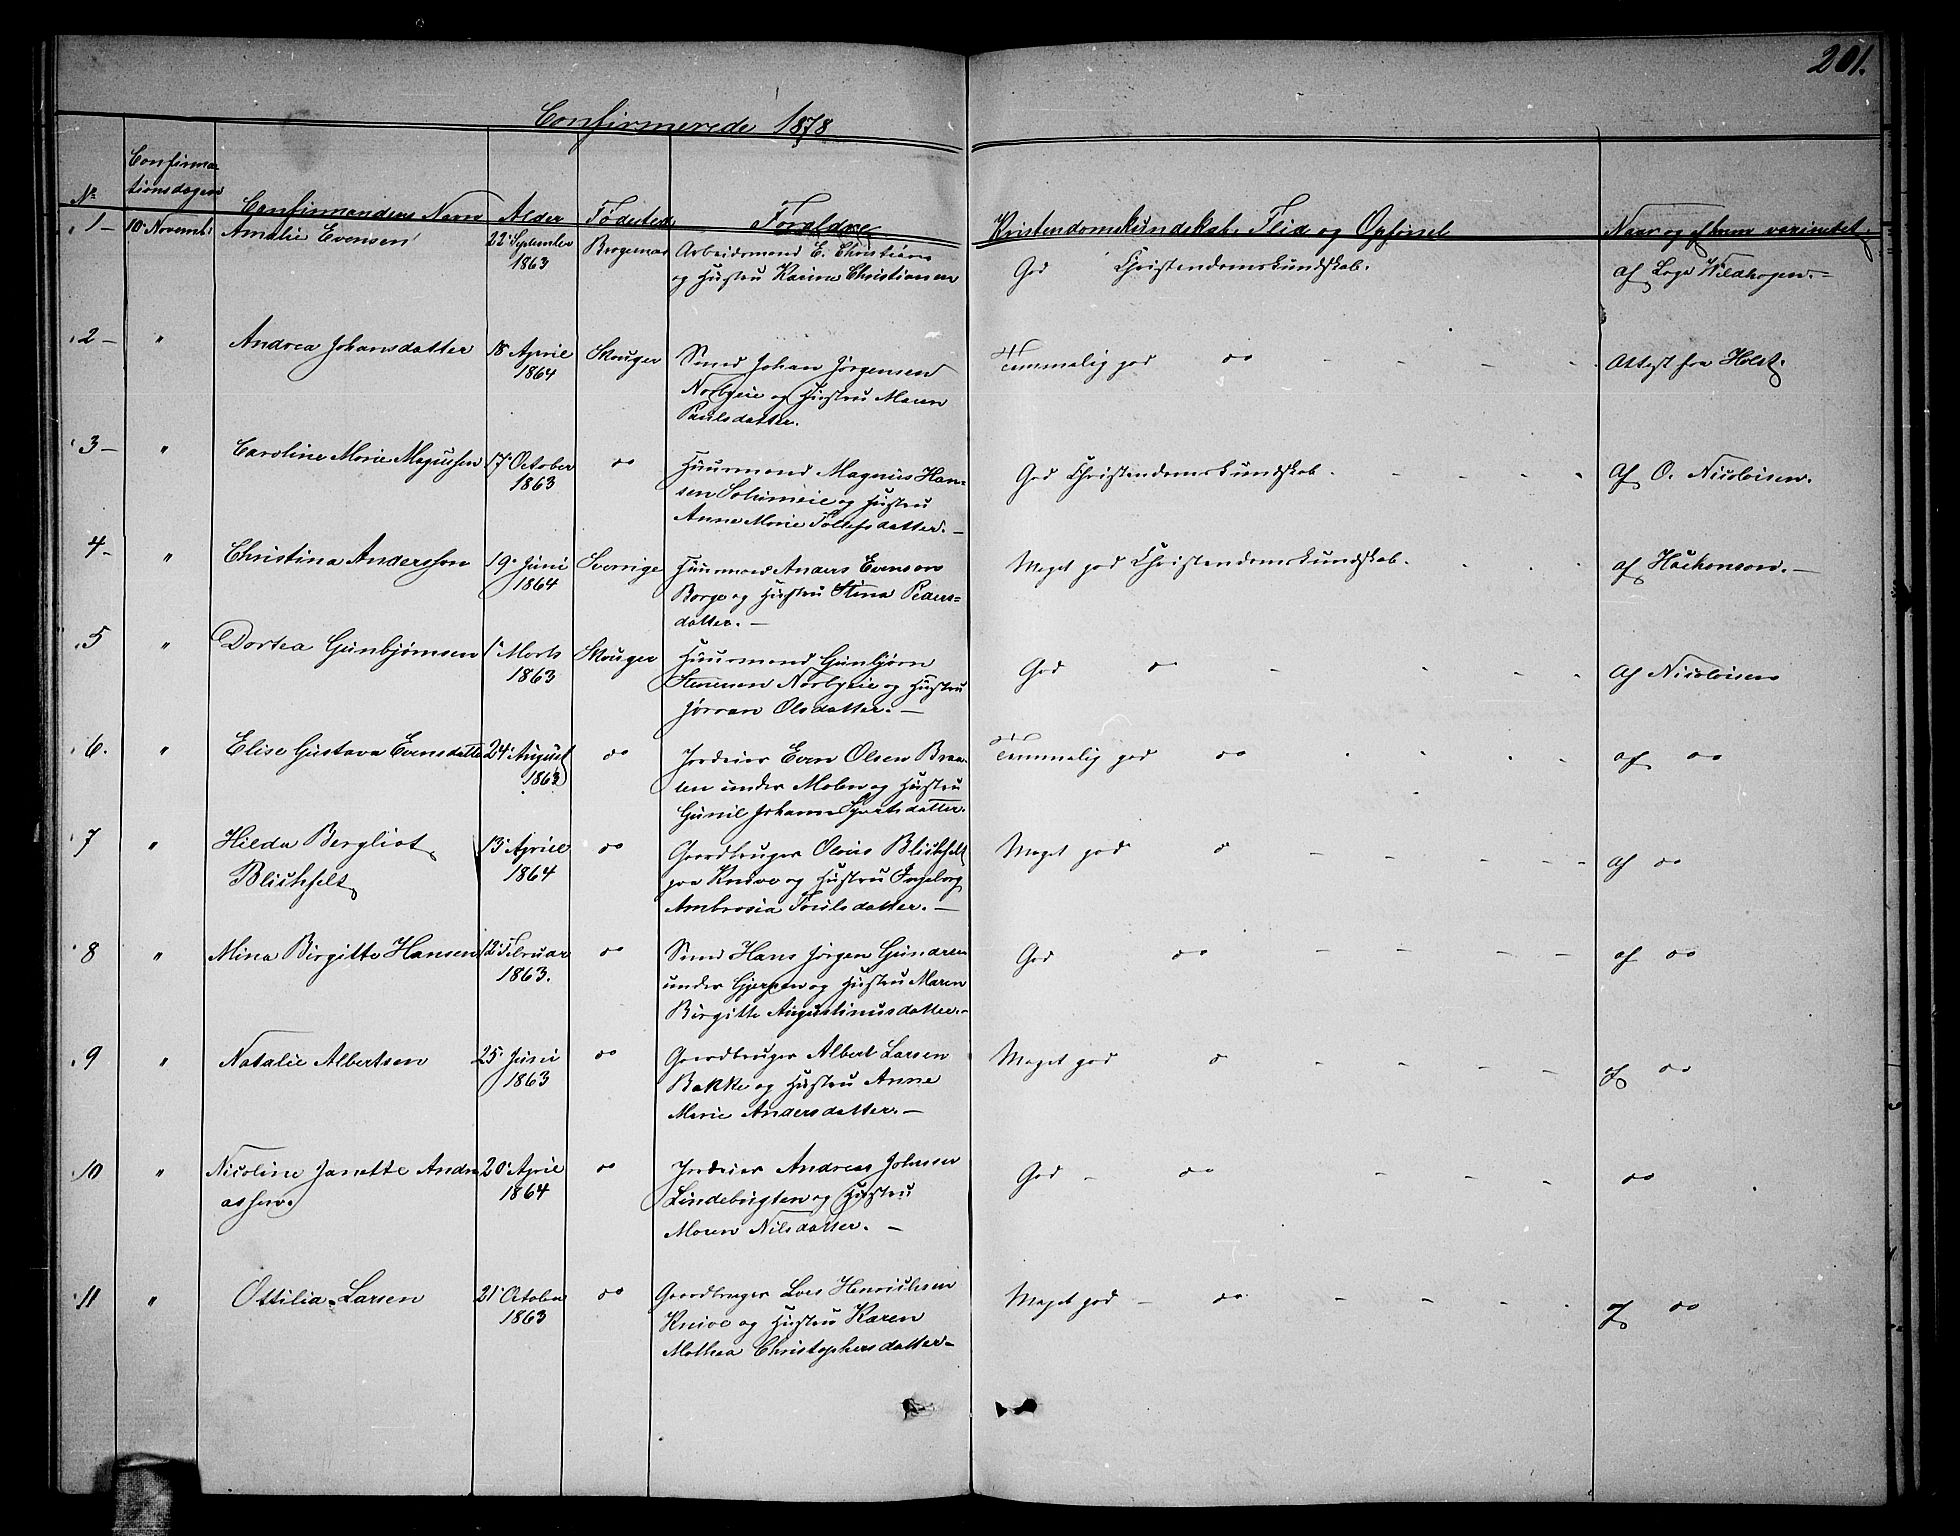 201.
Confirmerede 1878
No Confirmationsdagen Confirmandens Navn Alder Fødested Forældre Kristendomskundskab, Flid og Opførsel Naar og af hvem vaxineret
1 10 Novemb. Amalie Evensen 22 September Bragernæs Arbeidsmand E. Christians
1863 og Hustru Karine Christiansen God Christendomskundskab. af Læge Wildhagen.
2 " Andrea Johansdatter 18 April Skouger Smed Johan Jørgensen Temmelig god do Attest fra Holst.
1864 Norbyeie og Hustru Maren
Paulsdatter.
3 " Caroline Marie Magnussen 17 October do Huusmand Magnus Han- God Christendomskundskab. Af O. Nicolaisen.
1863 sen Solumeie og Hustru
Anne Marie Tollefsdatter.
4 " Christina Andersson 19 Juni Sverige Huusmand Anders Evensen Meget god Christendomskundskab. af Haakonson.
1864 Borge og Hustru Stina Peders-
datter.
5 " Dortea Gunbjørnsen 1 Marts Skouger Huusmand Gunbjørn God do Af Nicolaisen
1863 Stenesen Norbyeie og Hustru
Jørran Olsdatter.
6. " Elise Gustava Evensdatte 24 August do Jordeier Even Olsen Braa- Temmelig god do af do
1863 ten under Moen og Hustru
Gunil Johanne Syvertsdatter.
7 " Hilda Bergliot 13 April do Gaardbruger Olaus Blichfelt Meget god do af do
Blichfelt 1864 paa Knive og Hustru Ingeborg
Ambrosia Poulsdatter.
8 " Mina Birgitte Hansen 12 Februar do Smed Hans Jørgen Gundren God do af do
1863. under Gjerpen og Hustru Maren
Birgitte Augustinusdatter.
9 " Natalie Albertsen 25 Juni do Gaardbruger Albert Larsen Meget god do af do
1863 Bakke og Hustru Anne
Marie Andersdatter.
10 " Nicoline Janette Andre 20 April do Jordeier Andreas Johnsen God do do
assen. 1864 Lindebugten og Hustru
Maren Nilsdatter.
11 " Ottilia Larsen 21 October do Gaardbruger Lars Henrichsen Meget god do af do
1863 Knive og Hustru Karen
Mathea Christophersdatter